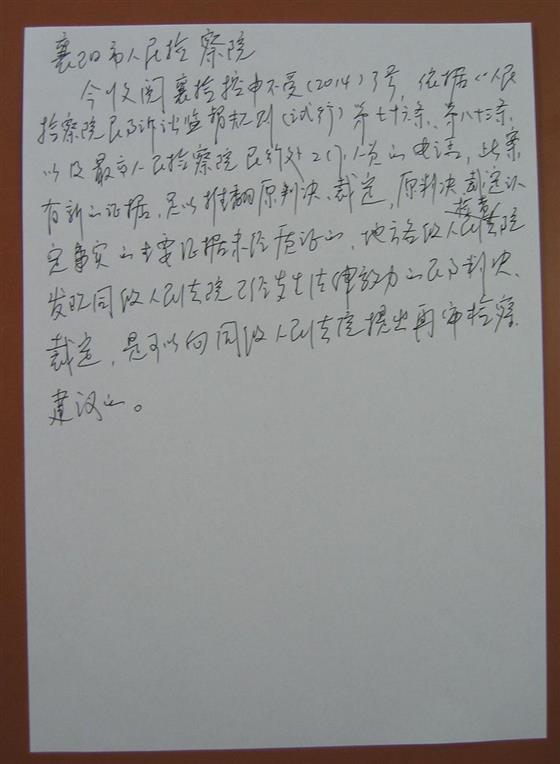 襄阳市人民检察院
今收阅襄检控申不受(2014)3号,依据《人民
检察院民事诉讼监督规则(试行)第七十六条、第八十三条,
以及最高人民检察院民行处工作人员的电话,此案
有新的证据,足以推翻原判决、裁定,原判决、裁定认
定事实的主要证据未经质证的,地方各级人民检察院
发现同级人民法院已经发生法律效力的民事判决、
裁定,是可以向同级人民法院提出再审检察
建议的。